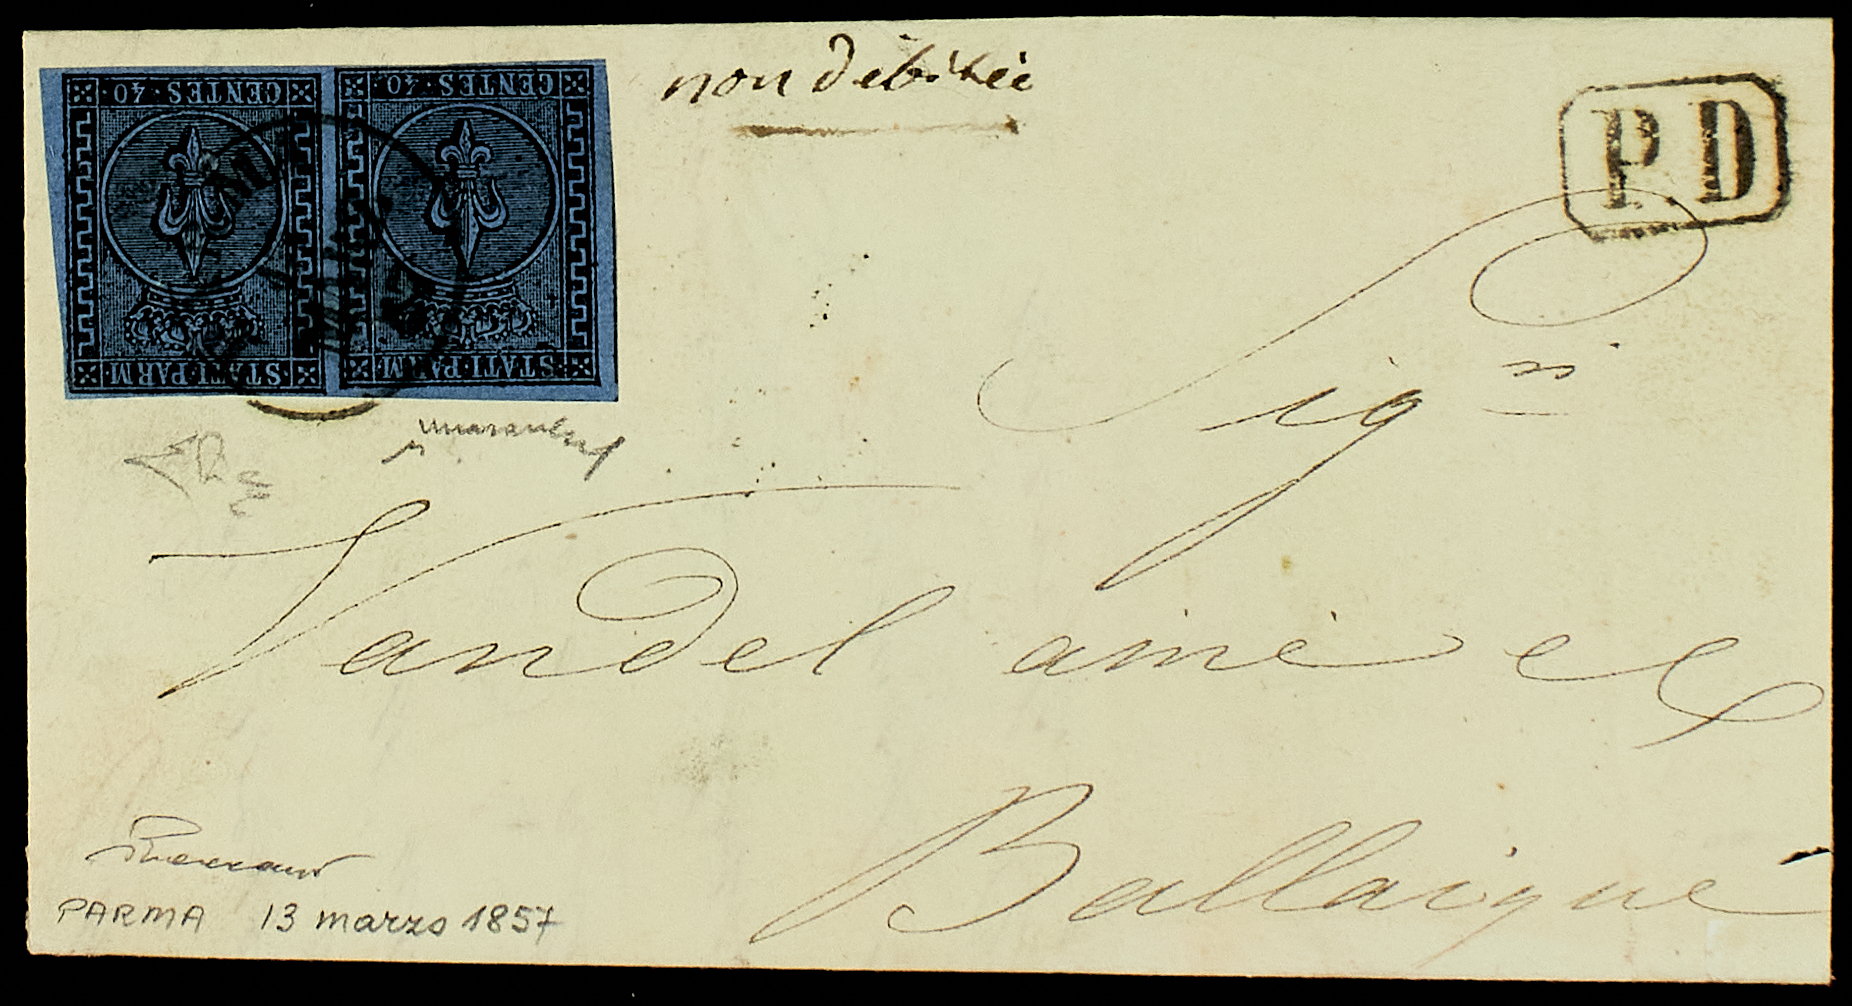 CENTES 40 CENTES 40
STATI PARM STATI PARM
non débitée
P.D
Sig.ri
Vandel ainé et C
Ballaigue
PARMA 13 marzo 1857